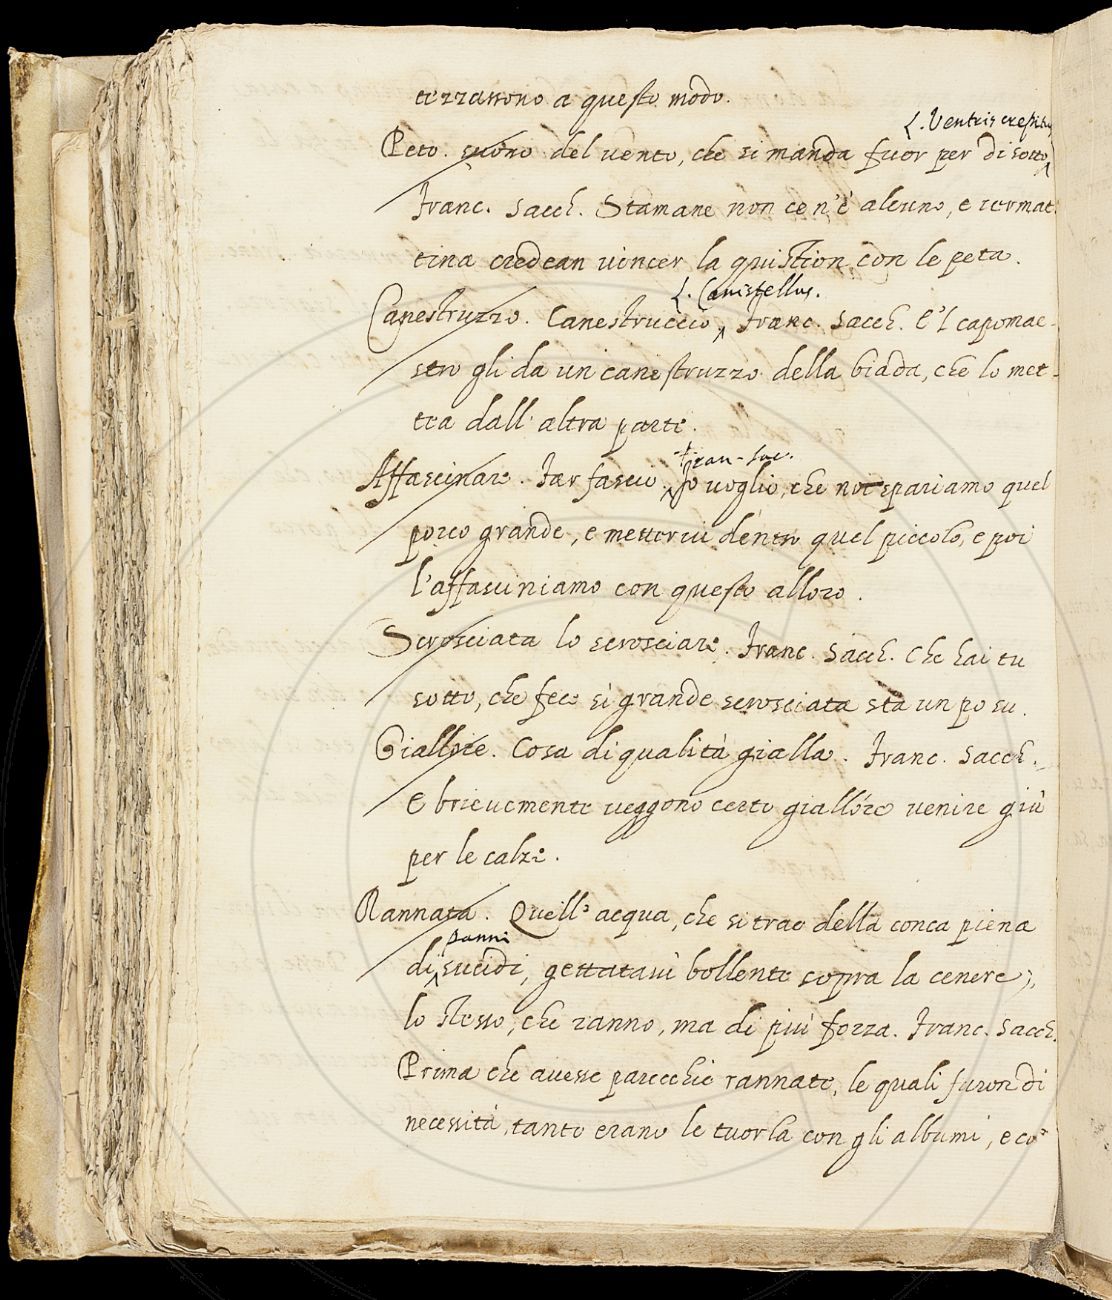 terzarono a questo modo.
L. Ventris crepitus
Peto. suono del vento, che si manda fuor per di sotto
Franc. Sacch. Stamane non ce n'è alcuno, e iermat-
tina credean vincer la quistion con le peta.
L. Canistellus.
Canestruzzo. Canestruccio, Franc. Sacch. E'l capomae-
stro gli da un canestruzzo della biada, che lo met-
tea dall'altra parte.
Fran. Sac.
Affascinare. Far fascio. Io voglio, che noi spariamo quel
porco grande, e mettervi dentro quel piccolo, e poi
l'affasciniamo con questo alloro.
Scrosciata lo scrosciare. Franc. Sacch. Che hai tu
sotto, che fece sì grande scrosciata sta un po su.
Giallore. Cosa di qualità gialla. Franc. Sacch.
E brievemente veggono certo giallore venire giù
per le calze.
Rannata. Quell'acqua, che si trae della conca piena
panni
di sucidi, gettatavi bollente sopra la cenere;
lo stesso, che ranno, ma di più forza. Franc. Sacch.
Prima che avesse parecchie rannate, le quali furon di
necessità, tanto erano le tuorla con gli albumi, e co'